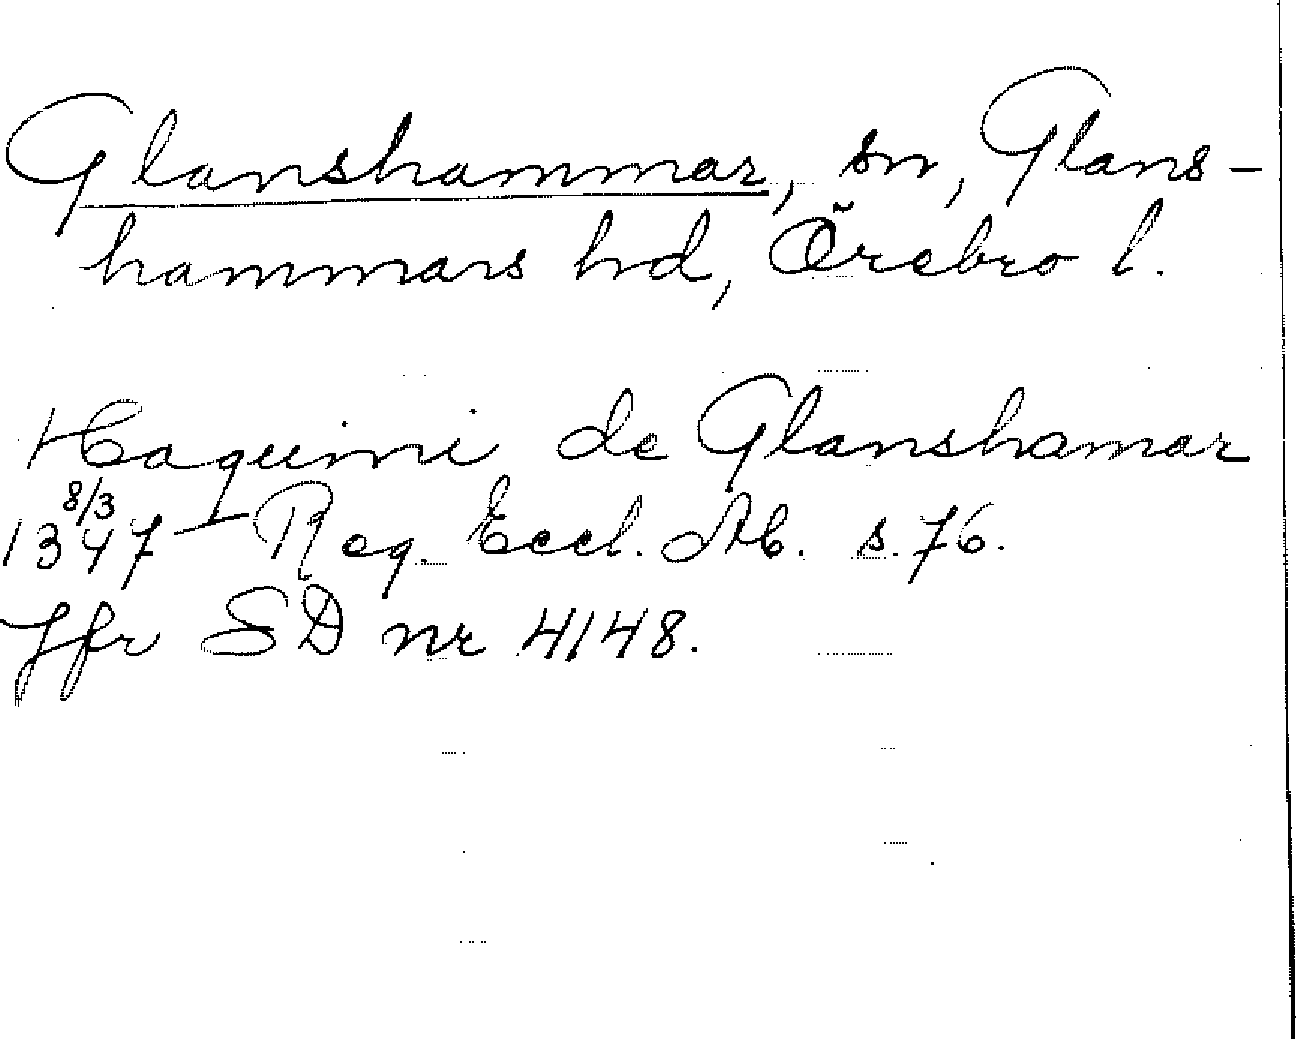 Glanshammar, sn, Glans-
hammars hd, Örebro l.
Haquini de Glanshamar
8/3
1347 Reg. Eccl. Ab. s. 76.
Jfr SD nr 4148.